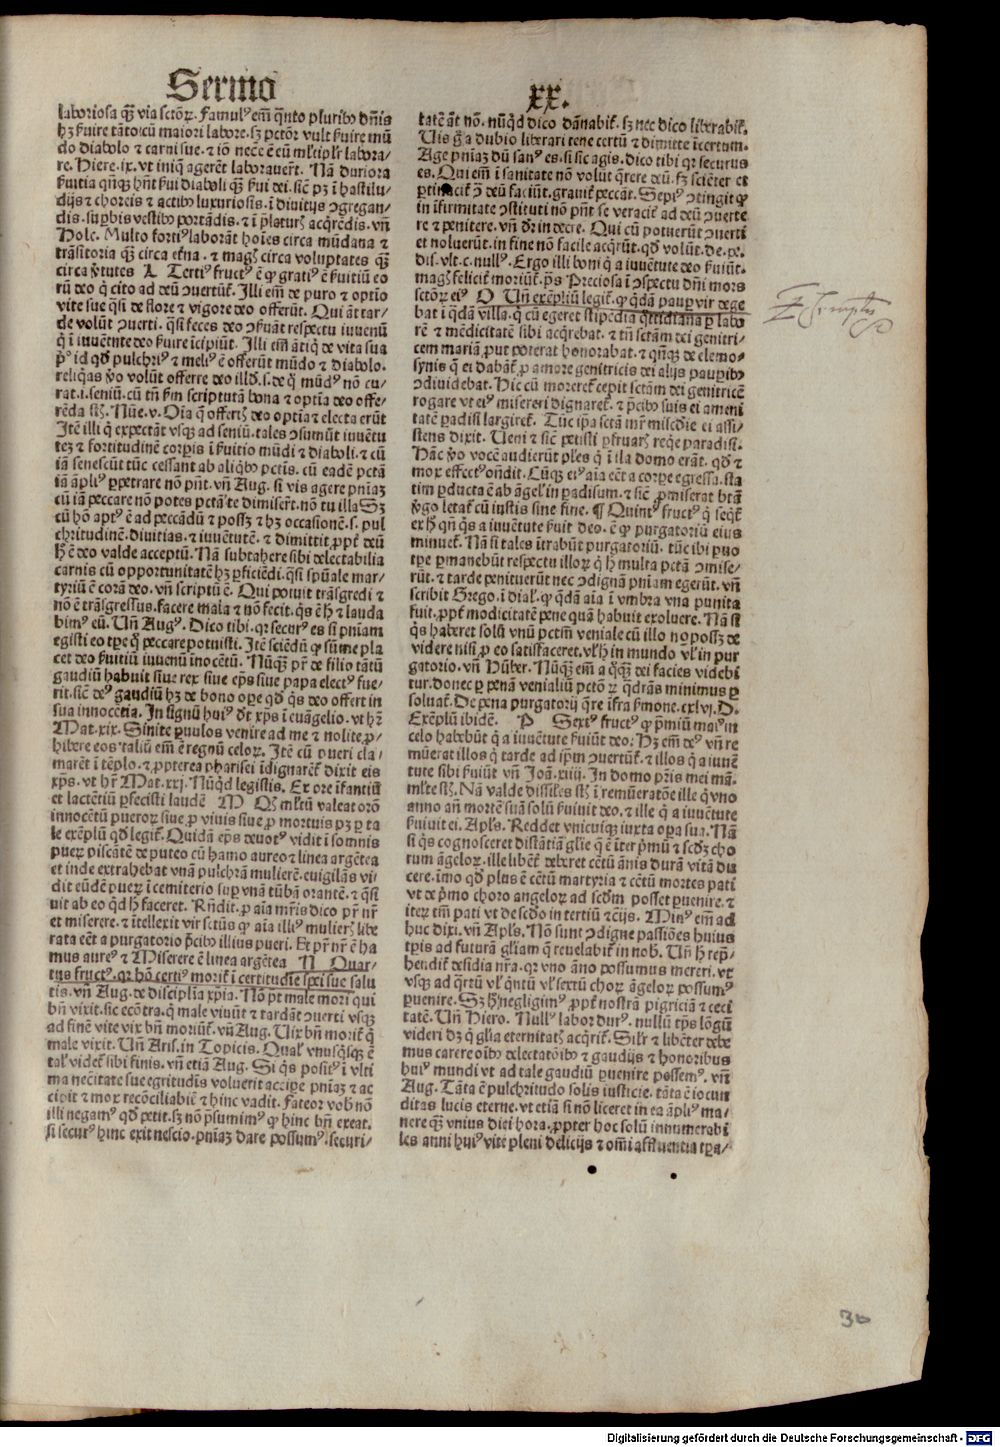 Sermo
XX.
laboriosa qȝ via sctōꝝ. Famulꝰ em̄ qn̄to pluribꝰ dn̄is
hȝ ẜuire tāto cū maiori labore. sȝ pctōr vult ẜuire mū
do diabolo ⁊ carni sue. ⁊ iō necē ē eū ml̓tipl̓r labora/
re. Hiere. ix. vt iniq̄ agerēt laborauer̄t. Nā duriora
ẜuitia qn̄qȝ hn̄t ẜui diaboli qȝ ẜui dei. sic̄ pȝ ī hastilu/
dijs ⁊ choreis ⁊ actibꝰ luxuriosis. ī diuitijs ↄgregan/
dis. suꝑbis vestibꝰ portādis. ⁊ ī p̄laturis acq̄rēdis. vn̄
Holc. Multo fortiꝰ laborāt hoīes circa mūdana ⁊
trāsitoria qȝ circa etn̄a. ⁊ magꝭ circa voluptates qȝ
circa v̓tutes L Tertiꝰ fructꝰ ē ꝙ gratiꝰ ē ẜuitiū eo
rū deo q̄ cito ad deū ↄuertūt̄. Illi em̄ de puro ⁊ optīo
vite sue q̄si de flore ⁊ vigore deo offerūt. Qui āt tar/
de volūt ↄuerti. q̄si feces deo ↄẜuāt respectu iuuenū
q̄ ī iuuētute deo ẜuire īcipiūt. Illi em̄ ātiq̄ de vita sua
pͥꝰ id qd̄ pulchriꝰ ⁊ meliꝰ ē offerūt mūdo ⁊ diabolo.
reliq̄as v̓o volūt offerre deo illd̄. s. de q̄ mūdꝰ nō cu/
rat. i. seniū. cū tn̄ ẜm scripturā bona ⁊ optīa deo offe/
rēda sūt. Nūe. v. Oīa q̄ offertꝭ deo optīa ⁊ electa erūt
Itē illi q̄ expectāt vsqȝ ad seniū. tales ↄsumūt iuuētu
teȝ ⁊ fortitudinē corꝑis ī ẜuitio mūdi ⁊ diaboli. ⁊ cū
iā senescūt tūc cessant ab aliq̄bꝰ pctīs. cū eadē pctā
iā ampliꝰ ꝑpetrare nō pn̄t. vn̄ Aug. si vis agere pn̄iaȝ
cū iā peccare nō potes pctā te dimiser̄t. nō tu illa Sȝ
cū hō aptꝰ ē ad peccādū ⁊ possȝ ⁊ hȝ occasionē. s. pul
chritudinē. diuitias. ⁊ iuuētutē. ⁊ dimittit ꝓpt̓ deū
h̓ ē deo valde acceptū. Nā subtrahere sibi delectabilia
carnis cū opportunitatē hȝ ꝑficiēdi. q̄si spūale mar/
tyriū ē corā deo. vn̄ scriptū ē. Qui potuit trāsgredi ⁊
nō ē trāsgressus. facere mala ⁊ nō fecit. q̄s ē h̓ ⁊ lauda
bimꝰ eū. Un̄ Augꝰ. Dico tibi. qꝛ securꝰ es si pn̄iam
egisti eo tꝑe q̄ peccare potuisti. Itē sciēdū ꝙ sūme pla
cet deo ẜuitiū iuuenū inocētū. Nūqȝ pr̄ de filio tātū
gaudiū habuit siue rex siue ep̄s siue papa electꝰ fue/
rit. sic̄ deꝰ gaudiū hȝ de bono oꝑe qd̄ q̄s deo offert in
sua innocētia. In signū huiꝰ dr̄t xp̄s ī euāgelio. vt hr̄
Mat. xix. Sinite ꝑuulos venire ad me ⁊ nolite ꝓ/
hibere eos taliū em̄ ē regnū celoꝝ. Itē cū pueri cla/
marēt ī tēplo. ⁊ ꝓpterea pharisei īdignarēt̄ dixit eis
xp̄s. vt hr̄ Mat. xxj. Nūqd̄ legistis. Ex ore īfantiū
et lactētiū ꝑfecisti laudē M Qꝫ ml̓tū valeat orō
innocētū pueroꝝ siue ꝓ viuis siue ꝓ mortuis pȝ ꝑ ta
le exēplū qd̄ legit̄. Quidā ep̄s deuotꝰ vidit ī somnis
pueꝝ piscātē de puteo cū hamo aureo ⁊ linea argētea
et inde extrahebat vnā pulchrā mulierē. euigilās vi/
dit eūdē pueꝝ ī cemiterio suꝑ vnā tūbā orantē. ⁊ q̄si
uit ab eo qd̄ h̓ faceret. Rn̄dit. ꝓ aīa mr̄is dico pr̄ nr̄
et miserere. ⁊ ītellexit vir sctūs ꝙ aīa illiꝰ mulierꝭ libe
rata eēt a purgatorio p̄cibꝰ illius pueri. Et pr̄ nr̄ ē ha
mus aureꝰ ⁊ Miserere ē linea argētea N Quar/
tus fructꝰ. qꝛ hō certiꝰ morit̄ ī certitudīe spei sue salu
tis. vn̄ Aug. de disciplīa xp̄ia. Nō pt̄ male mori qui
bn̄ vixit. sic ecōtra. q̄ male viuūt ⁊ tardāt ↄuerti vsqȝ
ad finē vite vix bn̄ moriūt̄. vn̄ Aug. Uix bn̄ morit̄ q̄
male vixit. Un̄ Aris. in Topicis. Qual̓ vnusq̄sqȝ ē
tal̓ videt̄ sibi finis. vn̄ etiā Aug. Si q̄s posit̓ ī vlti
ma necītate sue egritudīs voluerit accipe pn̄iaȝ ⁊ ac
cipit ⁊ mox recōciliabit̄ ⁊ hinc vadit. Fateor vob̄ nō
illi negamꝰ qd̄ petit. sȝ nō p̄sumimꝰ ꝙ hinc bn̄ exeat.
si securꝰ hinc exit nescio. pn̄iaȝ dare possumꝰ. securi/
tatē āt nō. nūqd̄ dico dānabit̄. sȝ nec dico liberabit̄.
Uis g̊ a dubio liberari tene certū ⁊ dimitte īcertum.
Age pn̄iaȝ dū sanꝰ es. si sic agis. dico tibi qꝛ securus
es. Qui em̄ ī sanitate nō volūt q̄rere deū. sȝ sciēter et
ꝑtinacit̓ ↄ̄ deū faciūt. grauit̓ peccāt. Sepiꝰ ↄtingit ꝙ
in īfirmitate ↄstituti nō pn̄t se veracit̓ ad deū ↄuerte
re ⁊ penitere. vn̄ dr̄ in decre. Qui cū potuerūt ↄuerti
et noluerūt. in fine nō facile acq̄rūt. qd̄ volūt. de. pe.
dis. vlt. c. nullꝰ. Ergo illi boni q̄ a iuuētute deo ẜuiūt.
magꝭ felicit̓ moriūt̄. p̄s Preciosa ī ↄspectu dn̄i mors
sctōꝝ eiꝰ O Un̄ exēpliū legit̄. ꝙ q̄dā pauꝑ vir dege
bat ī q̄dā villa. q̄ cū egeret stipēdia q̄ttidiana ꝑ labo
rē ⁊ mēdicitatē sibi acq̄rebat. ⁊ tn̄ sctām dei genitri/
cem mariā ꝓut poterat honorabat. ⁊ qn̄qȝ de elemo/
synis q̄ ei dabāt̄ ꝓ amore genitricis dei alijs pauꝑibꝰ
ↄdiuidebat. Hic cū moreret̄ cepit sctām dei genitricē
rogare vt eiꝰ misereri dignaret̄. ⁊ p̄cibꝰ suis ei ameni
tatē ꝑadisi largiret̄. Tūc ip̄a sctā mr̄ misc̄die ei assi/
stens dixit. Ueni ⁊ sic̄ petisti ꝑfruarꝭ req̄e paradisi.
Hāc v̓o vocē audierūt pl̓es q̄ ī illa domo erāt. qd̄ ⁊
mox effectꝰ on̄dit. Cūqȝ eiꝰ aīa eēt a corꝑe egressa. sta
tim ꝑducta ē ab āgel̓ in ꝑadisum. ⁊ sic̄ ꝓmiserat btā
v̓go letat̄ cū iustis sine fine. ¶ Quintꝰ fructꝰ q̄ seq̄t̄
ex h̓ qn̄ q̄s a iuuētute ẜuit deo. ē ꝙ purgatoriū eius
minuet̄. Nā si tales ītrabūt purgatoriū. tūc ibi ꝑuo
tꝑe ꝑmanebūt respectu illoꝝ q̄ h̓ multa pctā ↄmise/
rūt. ⁊ tarde penituerūt nec ↄdignā pn̄iam egerūt. vn̄
scribit Grego. ī dial̓. ꝙ q̄dā aīa ī vmbra vna punita
fuit. ꝓpt̓ modicitatē pene quā habuit exoluere. Nā si
q̄s haberet solū vnū pctm̄ veniale cū illo nō possȝ de
videre nisi ꝓ eo satisfaceret. vl̓ h̓ in mundo vl̓ in pur
gatorio. vn̄ Hūber. Nūqȝ em̄ a q̄qȝ dei facies videbi
tur. donec ꝑ penā venialiū pctōꝝ q̄drās minimus ꝑ
soluat̄. De pena purgatorij q̄re īfra ẜmone. cxlvj. D.
Exēplū ibidē. P Sextꝰ fructꝰ ꝙ p̄miū maiꝰ in
celo habebūt q̄ a iuuētute ẜuiūt deo. Hȝ em̄ deꝰ vn̄ re
mūerat illos q̄ tarde ad ip̄m ↄuertūt̄. ⁊ illos q̄ a iuuē
tute sibi ẜuiūt vn̄ Joā. xiiij. In domo pr̄is mei mā.
ml̓te sūt. Nā valde dissil̓es sūt ī remūeratōe ille q̄ vno
anno an̄ mortē suā solū ẜuiuit deo. ⁊ ille q̄ a iuuētute
ẜuiuit ei. Apl̓s. Reddet vnicuiqȝ iuxta oꝑa sua. Nā
si q̄s cognosceret distātiā gl̓ie q̄ ē īter p̄mū ⁊ scd̄ȝ cho
rum āgeloꝝ. ille libēt̓ deberet cētū ānis durā vitā du
cere. īmo qd̄ plus ē cētū martyria ⁊ cētū mortes pati
vt de p̄mo choro angeloꝝ ad scdm̄ posset ꝑuenire. ⁊
iteꝝ tm̄ pati vt de scdo in tertiū ⁊ cēijs. Minꝰ em̄ ad
huc dixi. vn̄ Apl̓s. Nō sunt ↄdigne passiōes huius
tꝑis ad futurā gl̓iam q̄ reuelabit̄ in nob̄. Un̄ h̓ rep̄/
hendit̄ desidia nr̄a. qꝛ vno āno possumus mereri. vt
vsqȝ ad q̄rtū vl̓ q̄ntū vl̓ sextū choꝝ āgeloꝝ possumꝰ
ꝑuenire. Sȝ h̓ negligimꝰ ꝓpt̓ nostrā pigriciā ⁊ ceci
tatē. Un̄ Hiero. Nullꝰ labor durꝰ. nullū tp̄s lōgū
videri dȝ q̄ gl̓ia eternitatꝭ acq̄rit̄. Sil̓r ⁊ libēter debe
mus carere oībꝰ delectatōibꝰ ⁊ gaudijs ⁊ honoribus
huiꝰ mundi vt ad tale gaudiū ꝑuenire possemꝰ. vn̄
Aug. Tāta ē pulchritudo solis iusticie. tāta ē iocun
ditas lucis eterne. vt etiā si nō liceret in ea ampliꝰ ma/
nere qȝ vnius diei hora. ꝓpter hoc solū innumerabi
les anni huiꝰ vite pleni delicijs ⁊ omī affluentia tꝑa/
30
Digitalisierung gefördert durch die Deutsche Forschungsgemeinschaft - DFG